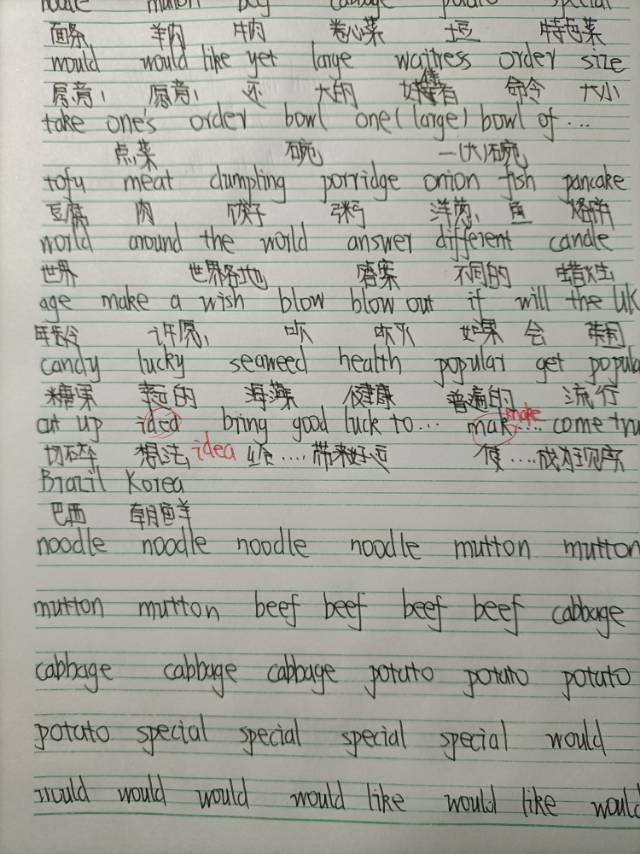 noodle mutton beef cabbage potato special
面条 羊肉 牛肉 卷心菜 土豆 特色菜
would would like yet large waitress order size
愿意 愿意 还 大的 命令 大小
take one's order bowl one(large) bowl of ...
点菜 碗 一(大)碗
tofu meat dumpling porridge onion fish pancake
豆腐 肉 饺子 粥 洋葱 鱼 烙饼
world around the world answer different candle
世界 世界各地 答案 不同的 蜡烛
age make a wish blow blow out if will the UK
年龄 许愿 吹 吹灭 如果 会 英国
candy lucky seaweed health popular get popula
糖果 幸运的 海藻 健康 普遍的 流行
cut up ided bring good luck to... mak make... come tru
切碎 想法 idea 给....带来好运 使....成为现实
Brazil Korea
巴西 朝鲜
noodle noodle noodle noodle mutton mutton
mutton mutton beef beef beef beef cabbage
cabbage cabbage cabbage potato potato potato
potato special special special special would
would would would would like would like would